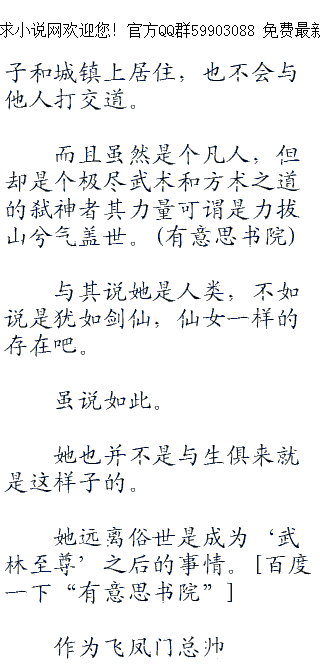 求小说网欢迎您！官方QQ群59903088 免费最新
子和城镇上居住，也不会与
他人打交道。
而且虽然是个凡人，但
却是个极尽武术和方术之道
的弑神者其力量可谓是力拔
山兮气盖世。(有意思书院)
与其说她是人类，不如
说是犹如剑仙，仙女一样的
存在吧。
虽说如此。
她也并不是与生俱来就
是这样子的。
她远离俗世是成为‘武
林至尊’之后的事情。[百度
一下“有意思书院”]
作为飞凤门总帅